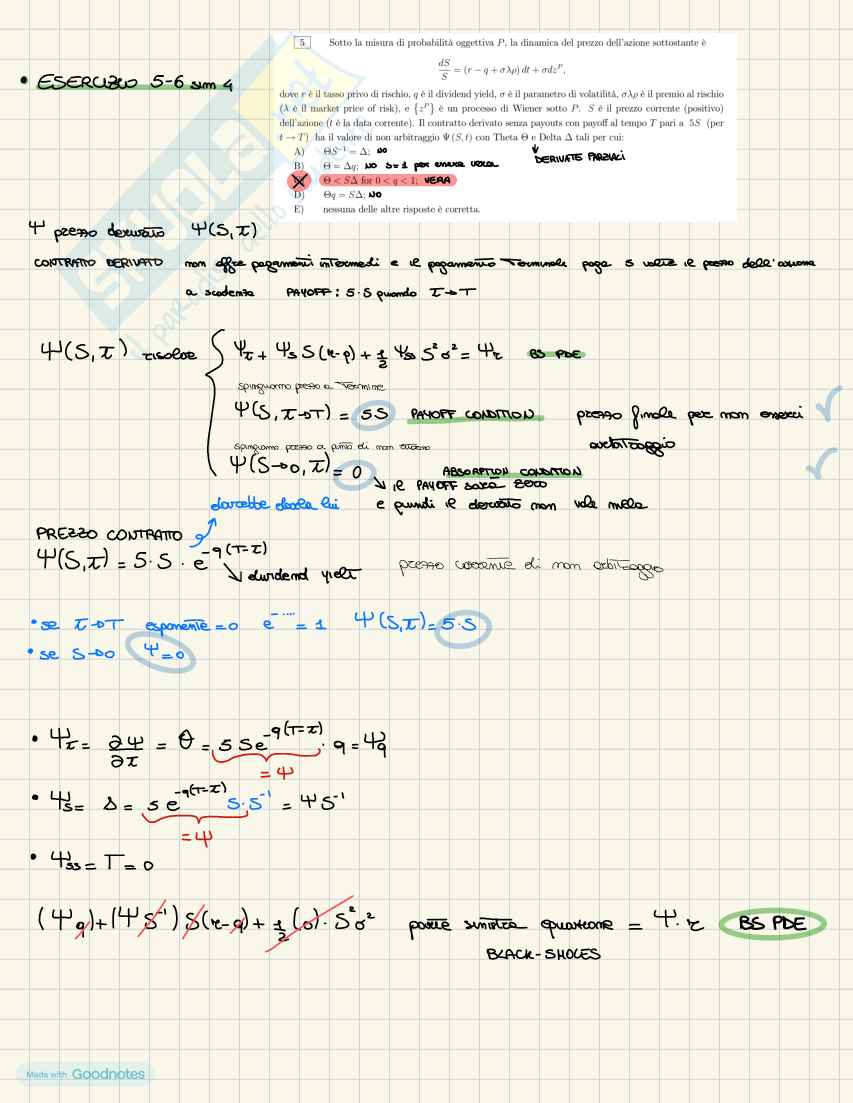 • ESERCIZIO 5-6 sim 4
5 Sotto la misura di probabilità oggettiva P, la dinamica del prezzo dell'azione sottostante è
dS/S = (r − q + σλρ) dt + σdz^P,
dove r è il tasso privo di rischio, q è il dividend yield, σ è il parametro di volatilità, σλρ è il premio al rischio
(λ è il market price of risk), e {z^P} è un processo di Wiener sotto P. S è il prezzo corrente (positivo)
dell'azione (t è la data corrente). Il contratto derivato senza payouts con payoff al tempo T pari a 5S (per
t → T) ha il valore di non arbitraggio Ψ(S, t) con Theta Θ e Delta Δ tali per cui:
A) ΘS⁻¹ = Δ; NO
DERIVATE PARZIALI
B) Θ = Δq; NO S=1 per essere vera
Θ < SΔ for 0 < q < 1; VERA
D) Θq = SΔ; NO
E) nessuna delle altre risposte è corretta.
Ψ prezzo derivato Ψ(S,τ)
CONTRATTO DERIVATO non offre pagamenti intermedi e il pagamento terminale paga 5 volte il prezzo dell'azione
a scadenza PAYOFF: 5·S quando τ→T
Ψ(S,τ) risolve Ψτ + Ψs S(r-q) + 1/2 Ψss S²σ² = Ψr BS PDE
spinguamo prezzo a termine
Ψ(S,τ→T) = 5S PAYOFF CONDITION prezzo finale per non esserci
arbitraggio
spinguamo prezzo a
Ψ(S→0,τ) = 0 ABSORPTION CONDITION
↘ il PAYOFF sarà zero
dovrebbe darla lui e quindi il derivato non vale nulla
PREZZO CONTRATTO
Ψ(S,τ) = 5·S·e^-q(T-τ)
↘ dividend yield prezzo corrente di non arbitraggio
• se τ→T esponente=0 e^-.... = 1 Ψ(S,τ)=5·S
• se S→0 Ψ=0
• Ψτ = ∂Ψ/∂τ = θ = 5Se^-q(T-τ) · q = Ψq
= Ψ
• Ψs = Δ = 5e^-q(T-τ) S·S⁻¹ = ΨS⁻¹
= Ψ
• Ψss = Γ = 0
(Ψq)+(ΨS⁻¹)S(r-q)+1/2(0)·S²σ² parte sinistra equazione = Ψ·r BS PDE
BLACK-SHOLES
SKUOLA.net
il paradiso dello
Made with Goodnotes